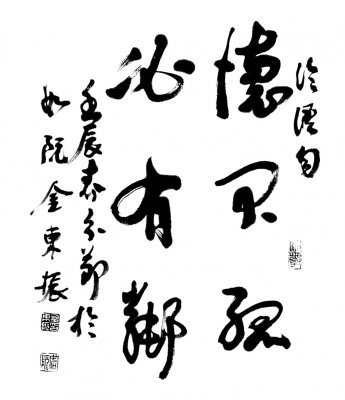 論語句
德不孤
必有鄰
壬辰春分節於
如阮金東振